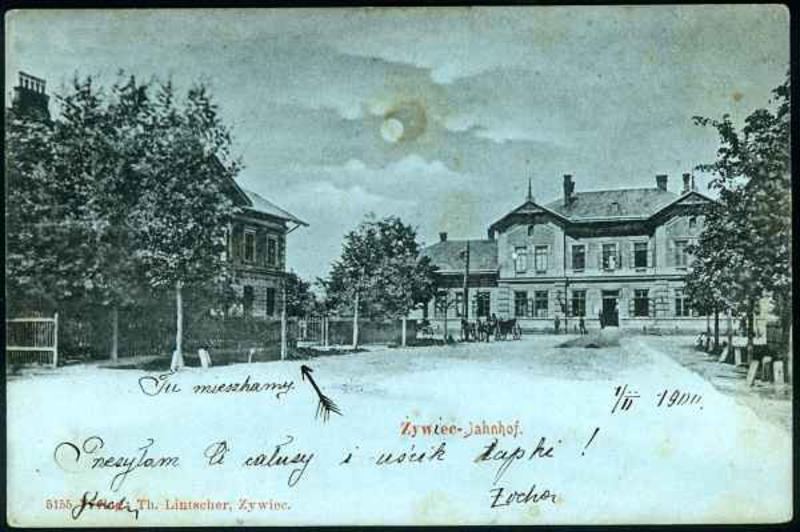 Tu mieszkamy
1/II 1900.
Żywiec-Bahnhof.
Presyłam Ci całusy i uścik łapki!
Zochor
5155 Verlag: Th. Lintscher, Zywiec.